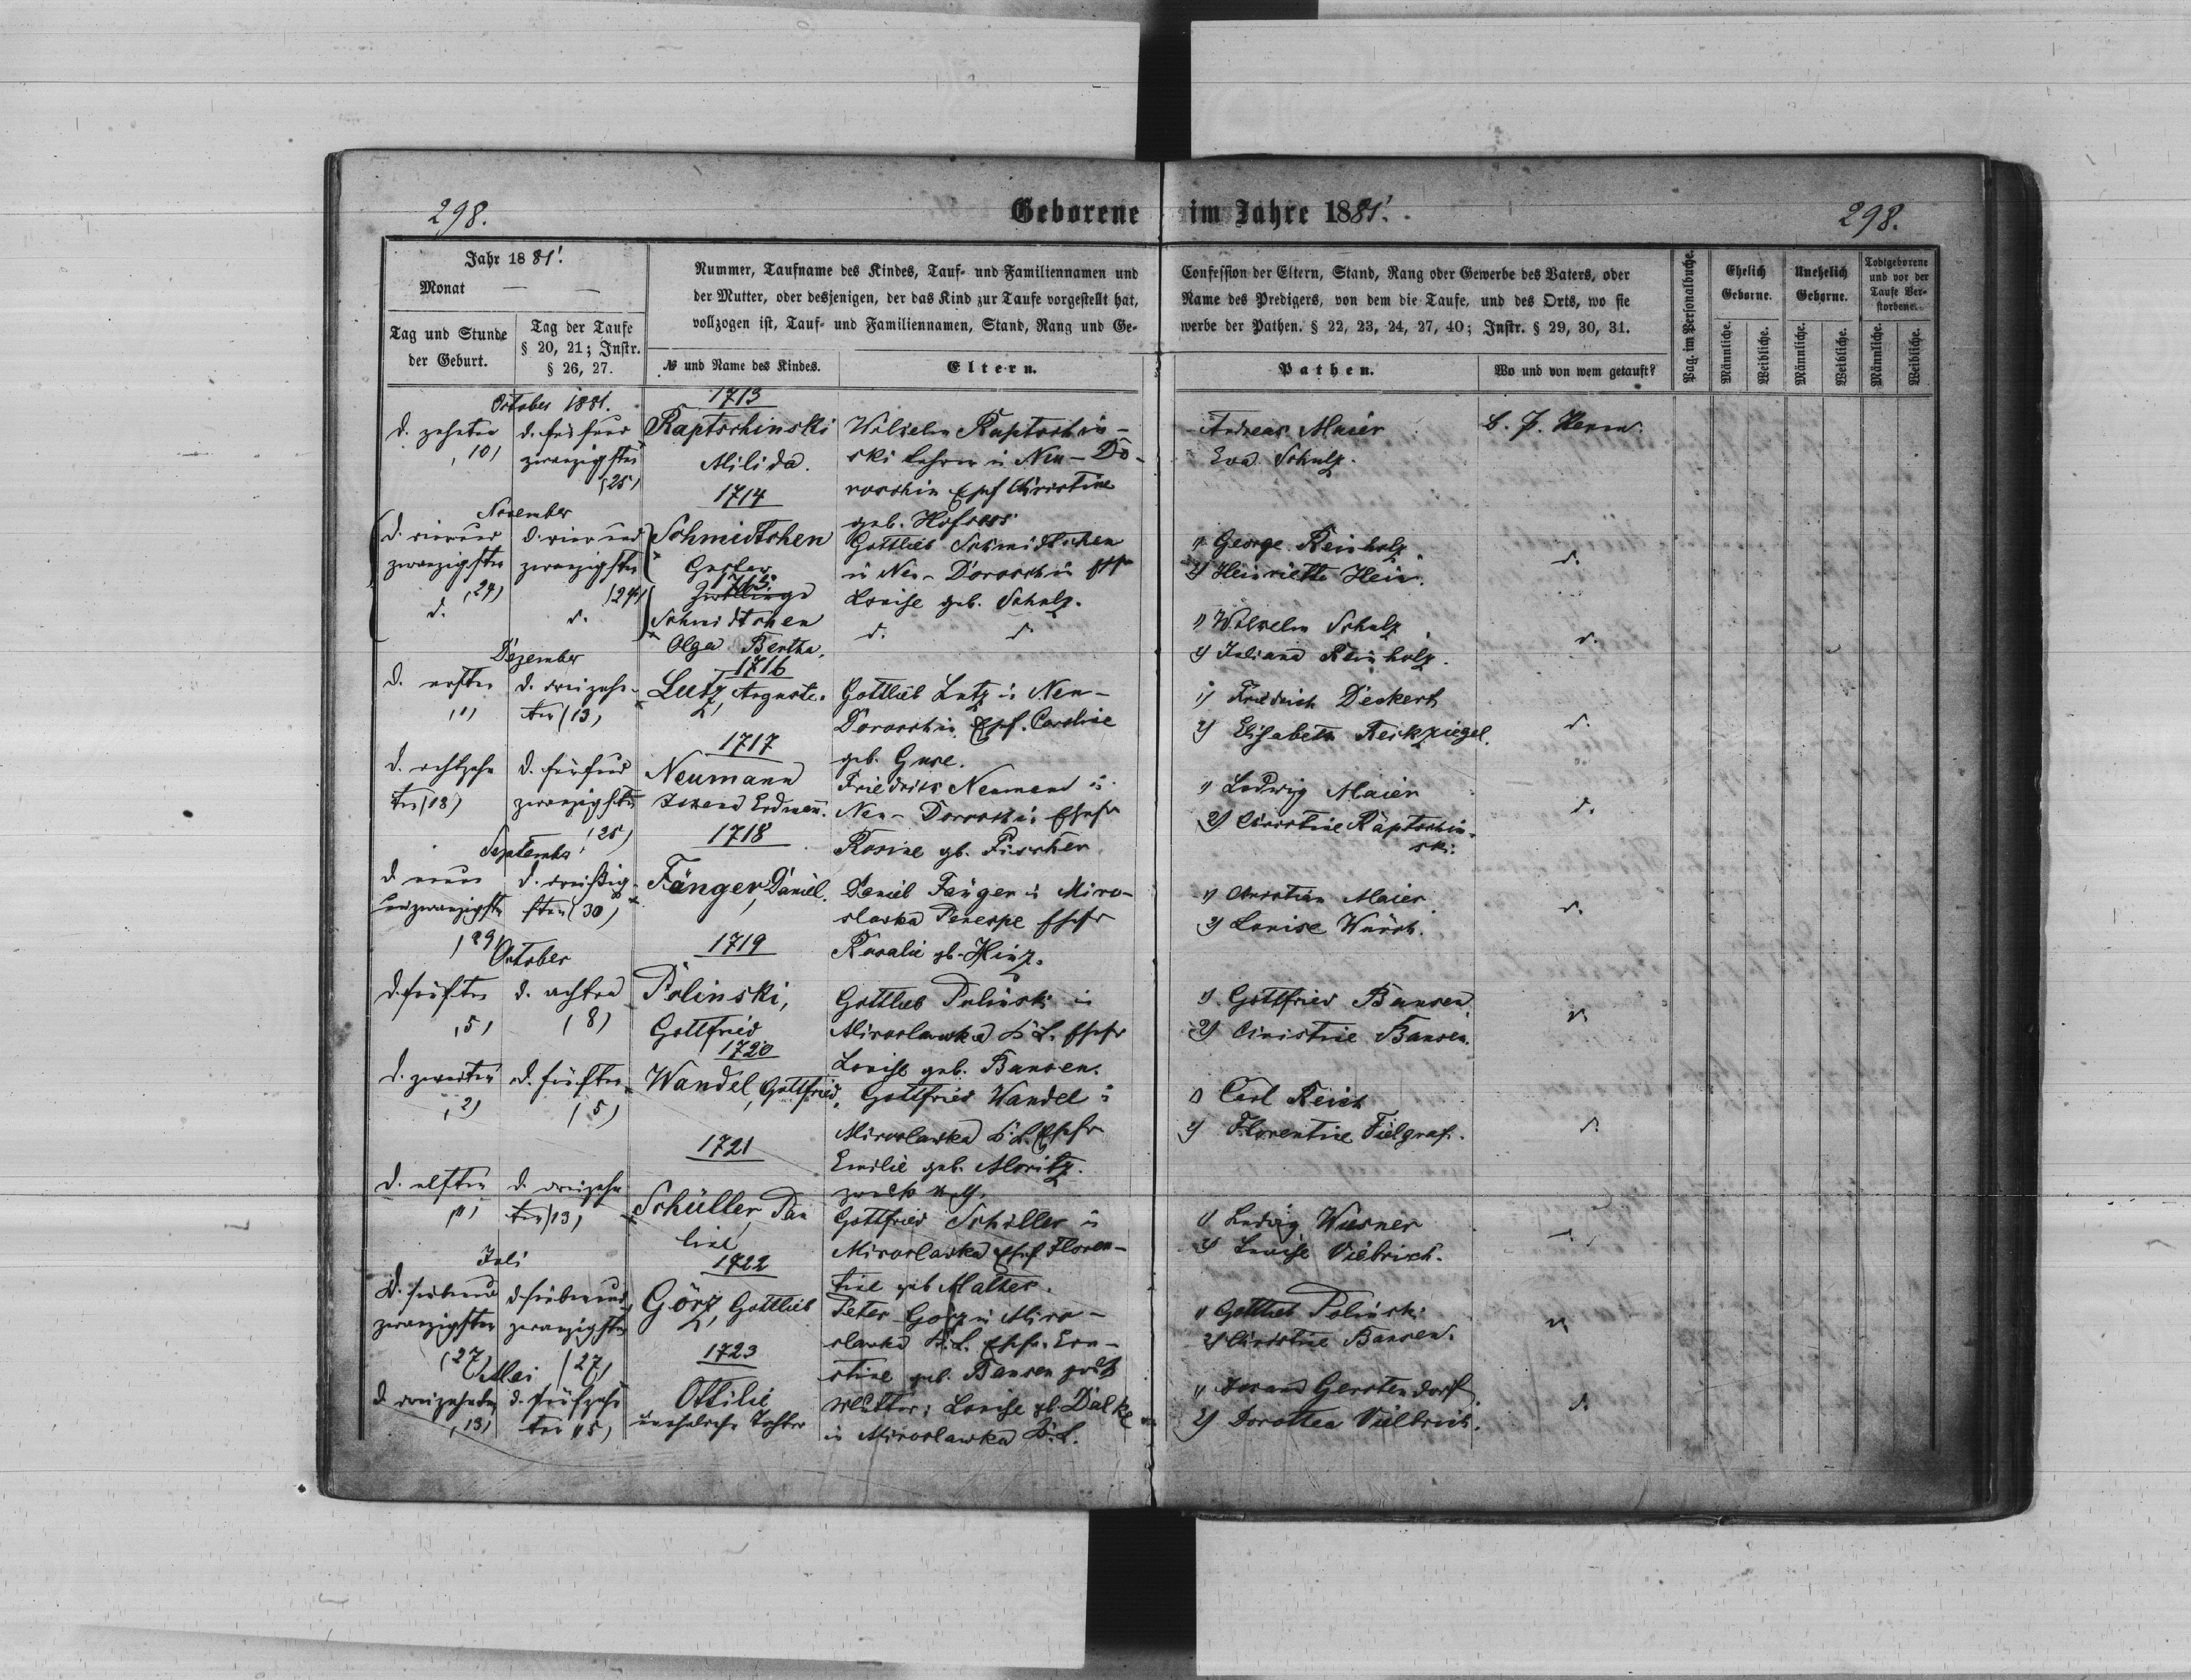 298.
Geborene im Jahre 1881.
298.
Jahr 1881.
Monat — —
Tag und Stunde
der Geburt.
Tag der Taufe
§ 20, 21; Instr.
§ 26, 27.
Nummer, Taufname des Kindes, Tauf- und Familiennamen und
der Mutter, oder desjenigen, der das Kind zur Taufe vorgestellt hat,
vollzogen ist, Tauf- und Familiennamen, Stand, Rang und Ge-
№ und Name des Kindes.
Eltern.
Confession der Eltern, Stand, Rang oder Gewerbe des Vaters, oder
Name des Predigers, von dem die Taufe, und des Orts, wo sie
werbe der Pathen. § 22, 23, 24, 27, 40; Instr. § 29, 30, 31.
Pathen.
Wo und von wem getauft?
Pag. im Personalbuche.
Ehelich
Geborne.
Unehelich
Geborne.
Todtgeborene
und vor der
Taufe Ver-
storbene.
Männliche.
Weibliche.
Männliche.
Weibliche.
Männliche.
Weibliche.
October 1881.
d. zehnten
(10)
d. fünfund
zwanzigsten
(25)
1713
Raptschinski
Milida.
Wilhelm Raptschin-
ski Lehrer in Neu-Do-
roschin Ehef Christine
geb.
Andreas Maier
Eva Schulz.
November
d. vierund
zwanzigsten
(24)
d. vierund
zwanzigsten
(24)
1714
Schmidtchen
Gustav
Gottlieb Schmidtchen
in Neu-Doroschin
Louise geb. Schulz.
1) George Reinholz
2) Henriette Hein.
d.
d.
d.
1715.
Zwillinge
Schmidtchen
Olga Bertha.
d. d.
1) Wilhelm Schulz
2) Juliana Reinholz.
d.
Dezember
d. ersten
(1)
d. dreizehn-
ten (13)
1716
Lutz, Auguste.
Gottlieb Lutz in Neu-
Doroschin Ehef. Caroline
geb. Guse.
1) Friedrich Deckert
2) Elisabeth Reickziegel.
d.
d. achtzehn
ten (18)
d. fünfund
zwanzigsten
(25)
1717
Neumann
Friedrich Neumann in
Neu-Doroschin Ehefr
Rosine gb. Fischer
1) Ludwig Maier
2) Christine Raptschin-
ski.
d.
September
d. neun
undzwanzigsten
(29)
d. dreißig-
sten (30)
1718
Fänger, Daniel.
Daniel Fänger in Miro-
slawka Ehefr
Rosalie gb. Hinz.
1) Christian Maier
2) Louise
d.
October
d. fünften
(5)
d. achten
(8)
1719
Polinski,
Gottfried
Gottlieb Polinski in
Miroslawka B. L. Ehefr
Louise geb. Bansen.
1) Gottfried Bansen
2) Christine Bansen.
d.
d. zweiten
(2)
d. fünften
(5)
1720
Wandel, Gottfried,
Gottfried Wandel in
Miroslawka B. L. Ehefr
Emilie geb. Moritz.
1) Carl Reich
2) Florentine
d.
d. elften
(11)
d. dreizehn
ten (13)
1721
Schüller, Pau
line
Gottfried Schiller in
Miroslawka Ehef. Floren-
tine geb Malther.
1) Ludwig
2) Louise Viebrich.
Juli
d. siebenund
zwanzigsten
(27)
d. siebenund
zwanzigsten
(27)
1722
Görz, Gottlieb
Peter Görz in Miro-
slawka B. L. Ehefr. Ern-
stine geb. Bansen
1) Gottlieb Polinski
2) Christine Bansen.
Mai
d. dreizehnten
(13)
d. fünfzehn
ten (15)
1723
Ottilie
uneheliche Tochter
Mutter: Louise gb. Dalke
in Miroslawka B. L.
1) Johann Gerstendorf
2) Dorothea Vielbrich.
d.